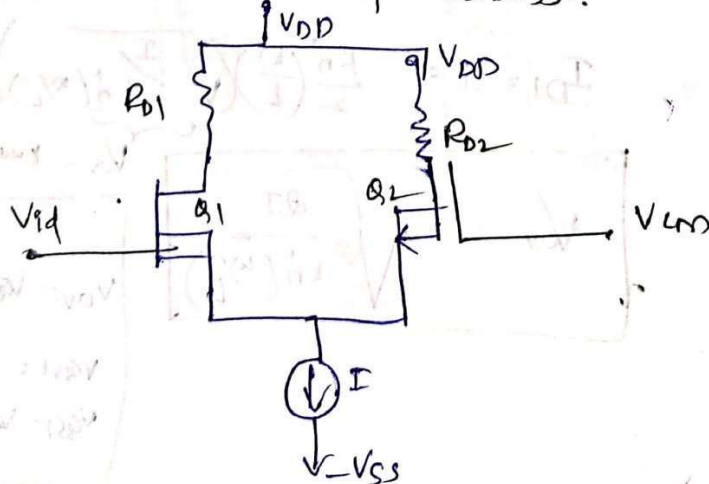 VDD
VDD
RD1
RD2
Vid
Q1
Q2
I
-VSS